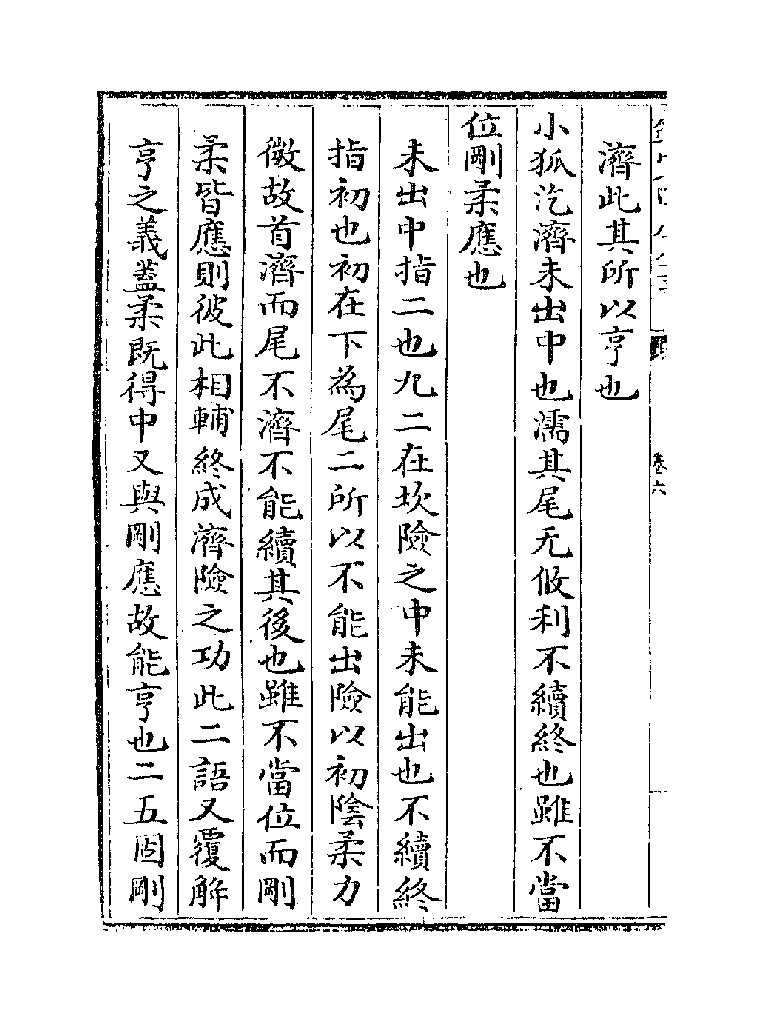 濟此其所以亨也
小狐汔濟未出中也濡其尾无攸利不續終也雖不當
位剛柔應也
未出中指二也九二在坎險之中未能出也不續終
指初也初在下為尾二所以不能出險以初陰柔力
微故首濟而尾不濟不能續其後也雖不當位而剛
柔皆應則彼此相輔終成濟險之功此二語又覆解
亨之義蓋柔既得中又與剛應故能亨也二五固剛
卷六